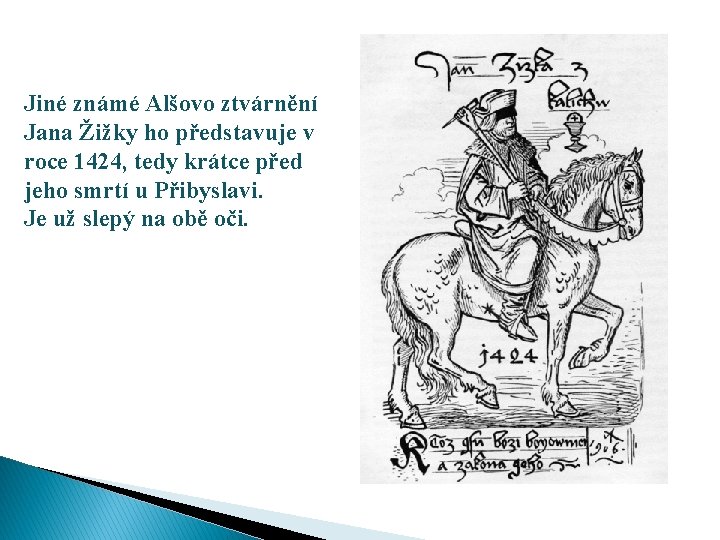 Jiné známé Alšovo ztvárnění
Jana Žižky ho představuje v
roce 1424, tedy krátce před
jeho smrtí u Přibyslavi.
Je už slepý na obě oči.
Jan Žižka z
kalichu
1424
Ktož jsú boží bojovníci
a zákona jeho
1908.